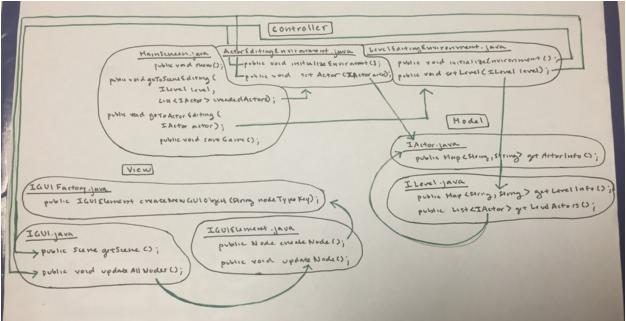 Controller
MainScreen.java
public void
public void goToSceneEditing(
ILevel level,
List<IActor> createdActors);
public void goToActorEditing(
IActor actor);
public void saveGame();
ActorEditingEnvironment.java
public void initializeEnvironment();
public void setActor(IActor actor);
LevelEditingEnvironment.java
public void initializeEnvironment();
public void setLevel(ILevel level);
Model
IActor.java
public Map<String, String> getActorInfo();
ILevel.java
public Map<String, String> getLevelInfo();
public List<IActor> getLevelActors();
View
IGUIFactory.java
public IGUIElement createNewGUIObject(String nodeTypeKey);
IGUI.java
public Scene getScene();
public void updateAllNodes();
IGUIElement.java
public Node createNode();
public void updateNode();